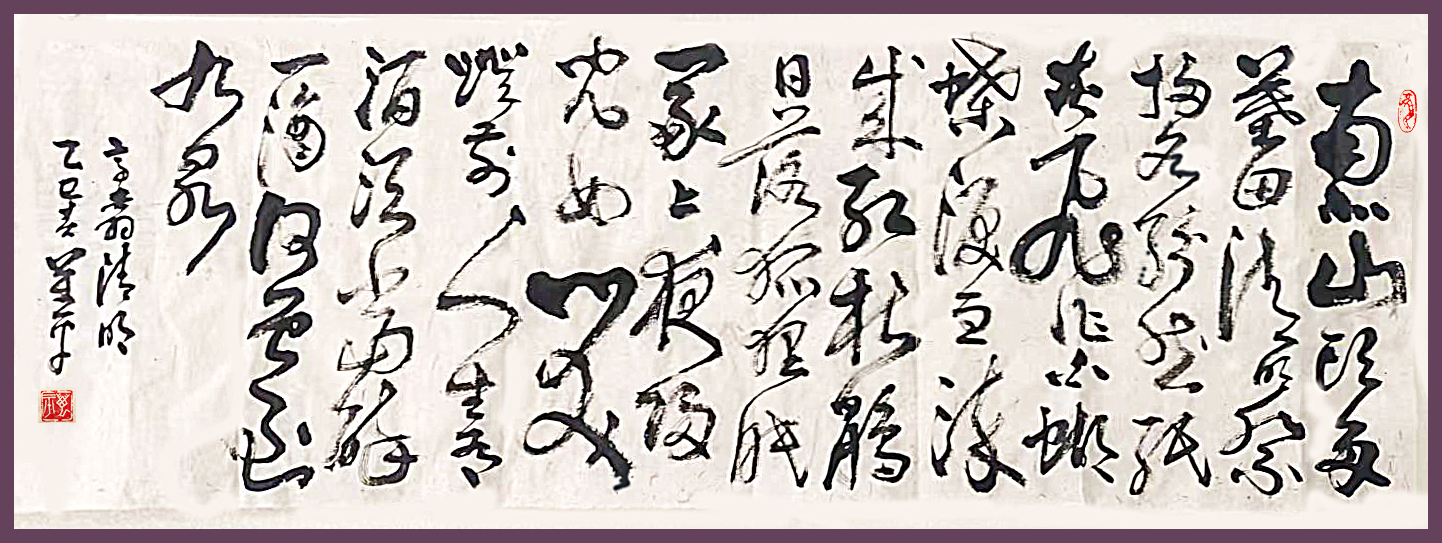 南北山頭多
墓田清明祭
掃各紛然紙
灰飛作白蝴
蝶淚血染
成紅杜鵑
日落狐狸眠
冢上夜歸
兒女笑
燈前人生有
酒須當醉
一滴何曾到
九泉
高翥清明
乙巳春